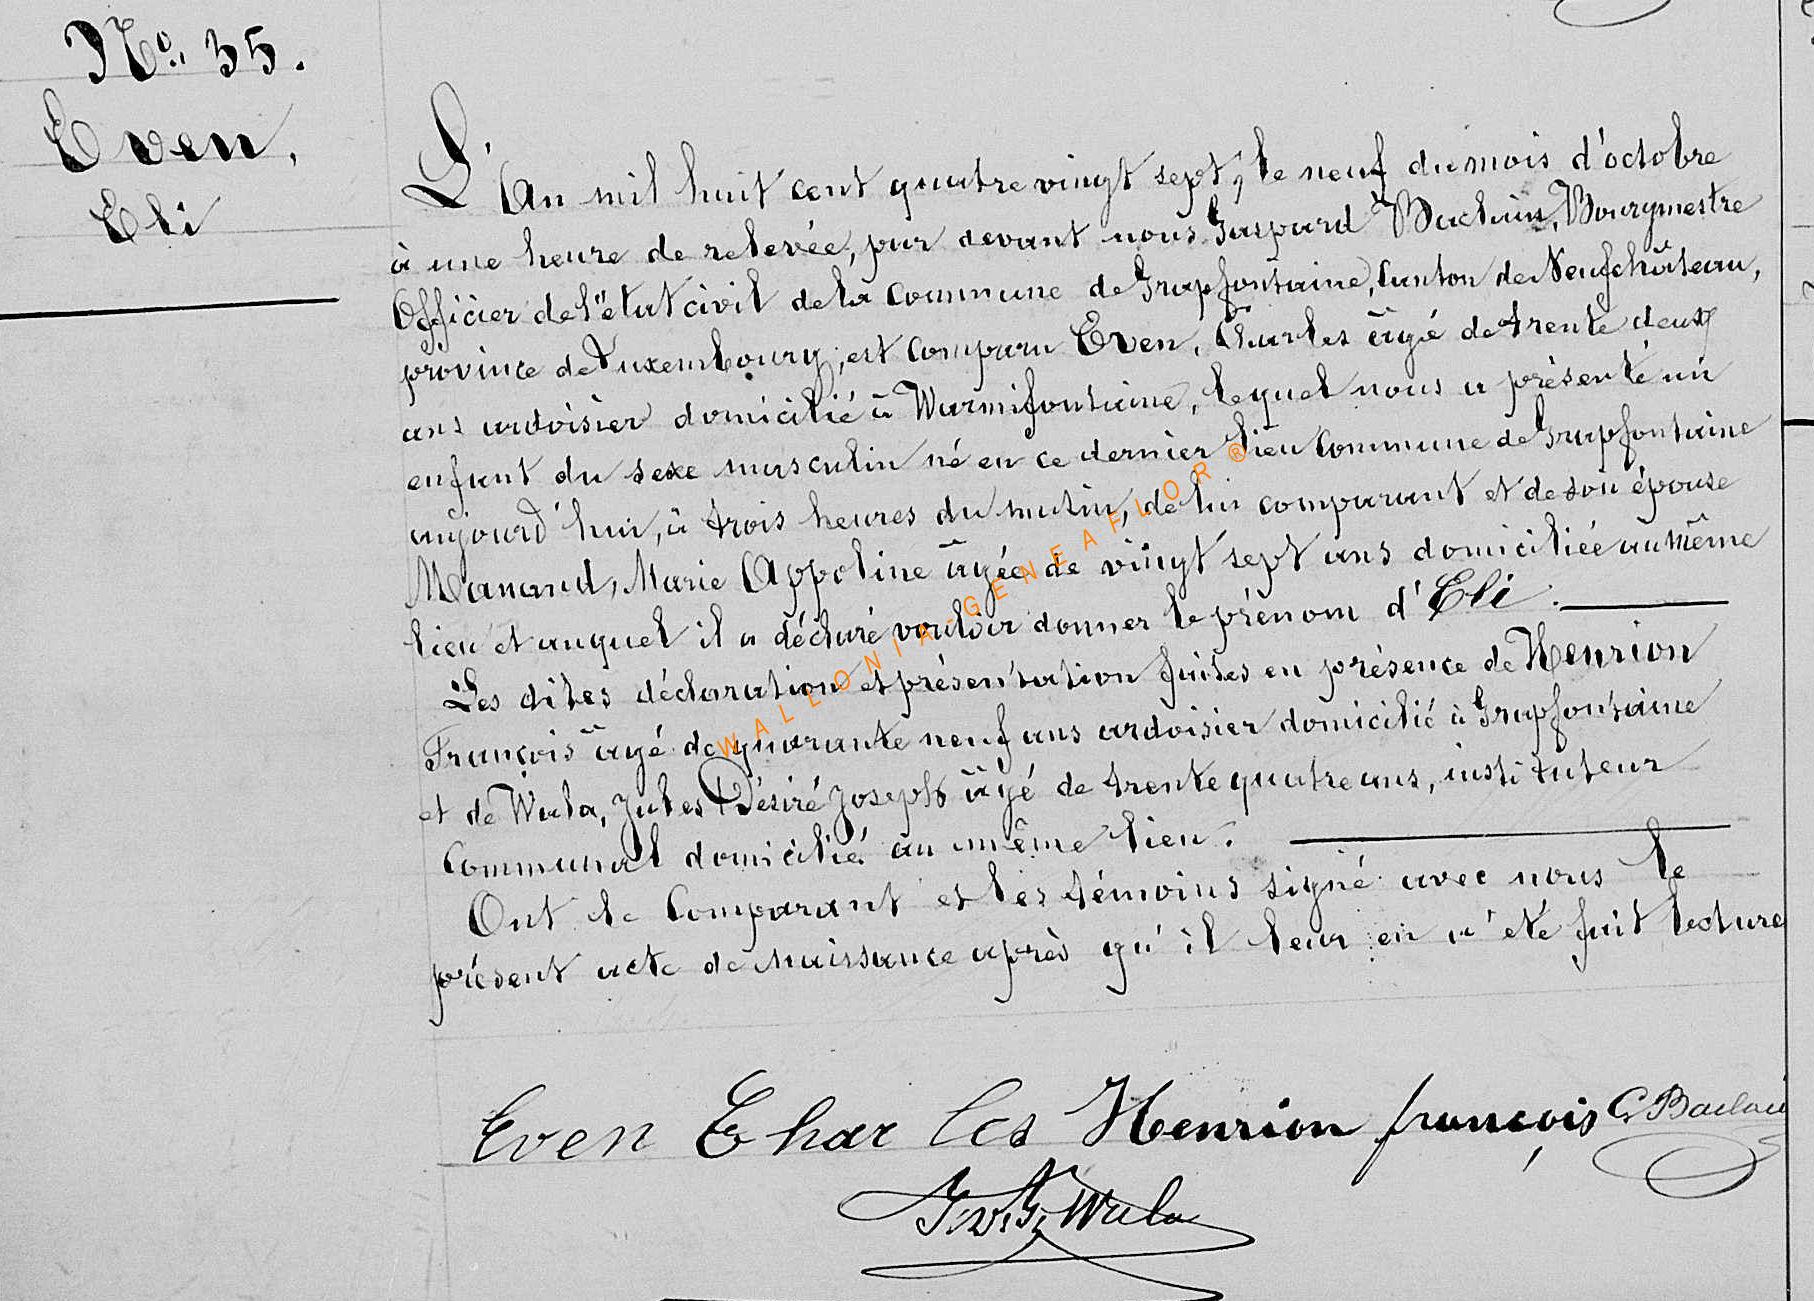 No. 35.
Even,
Eli
L'An mil huit cent quatre vingt sept, le neuf du mois d'octobre
à une heure de relevée, par devant nous Gaspard Bourgmestre
Officier de l'état civil de la Commune de Grapfontaine, Canton de Neufchâteau,
province de Luxembourg, est comparu Even, Charles âgé de trente deux
ans ardoisier domicilié à Warmifontaine, lequel nous a présenté un
enfant du sexe masculin né en ce dernier lieu Commune de Grapfontaine
aujourd'hui, à trois heures du matin, de lui comparant et de son épouse
Manand, Marie Appoline âgée de vingt sept ans domiciliée au même
lieu et auquel il a déclaré vouloir donner le prénom d'Eli.
Les dites déclaration et présentation faites en présence de Henrion
François âgé de quarante neuf ans ardoisier domicilié à Grapfontaine
et de Wala, Jules Désiré Joseph âgé de trente quatre ans, instituteur
Communal domicilié au même lieu.
Ont le Comparant et les témoins signé avec nous le
présent acte de naissance après qu'il leur en a été fait lecture
Even Charles Henrion françois
Wala
WALLONIA-GENEAFLOR®